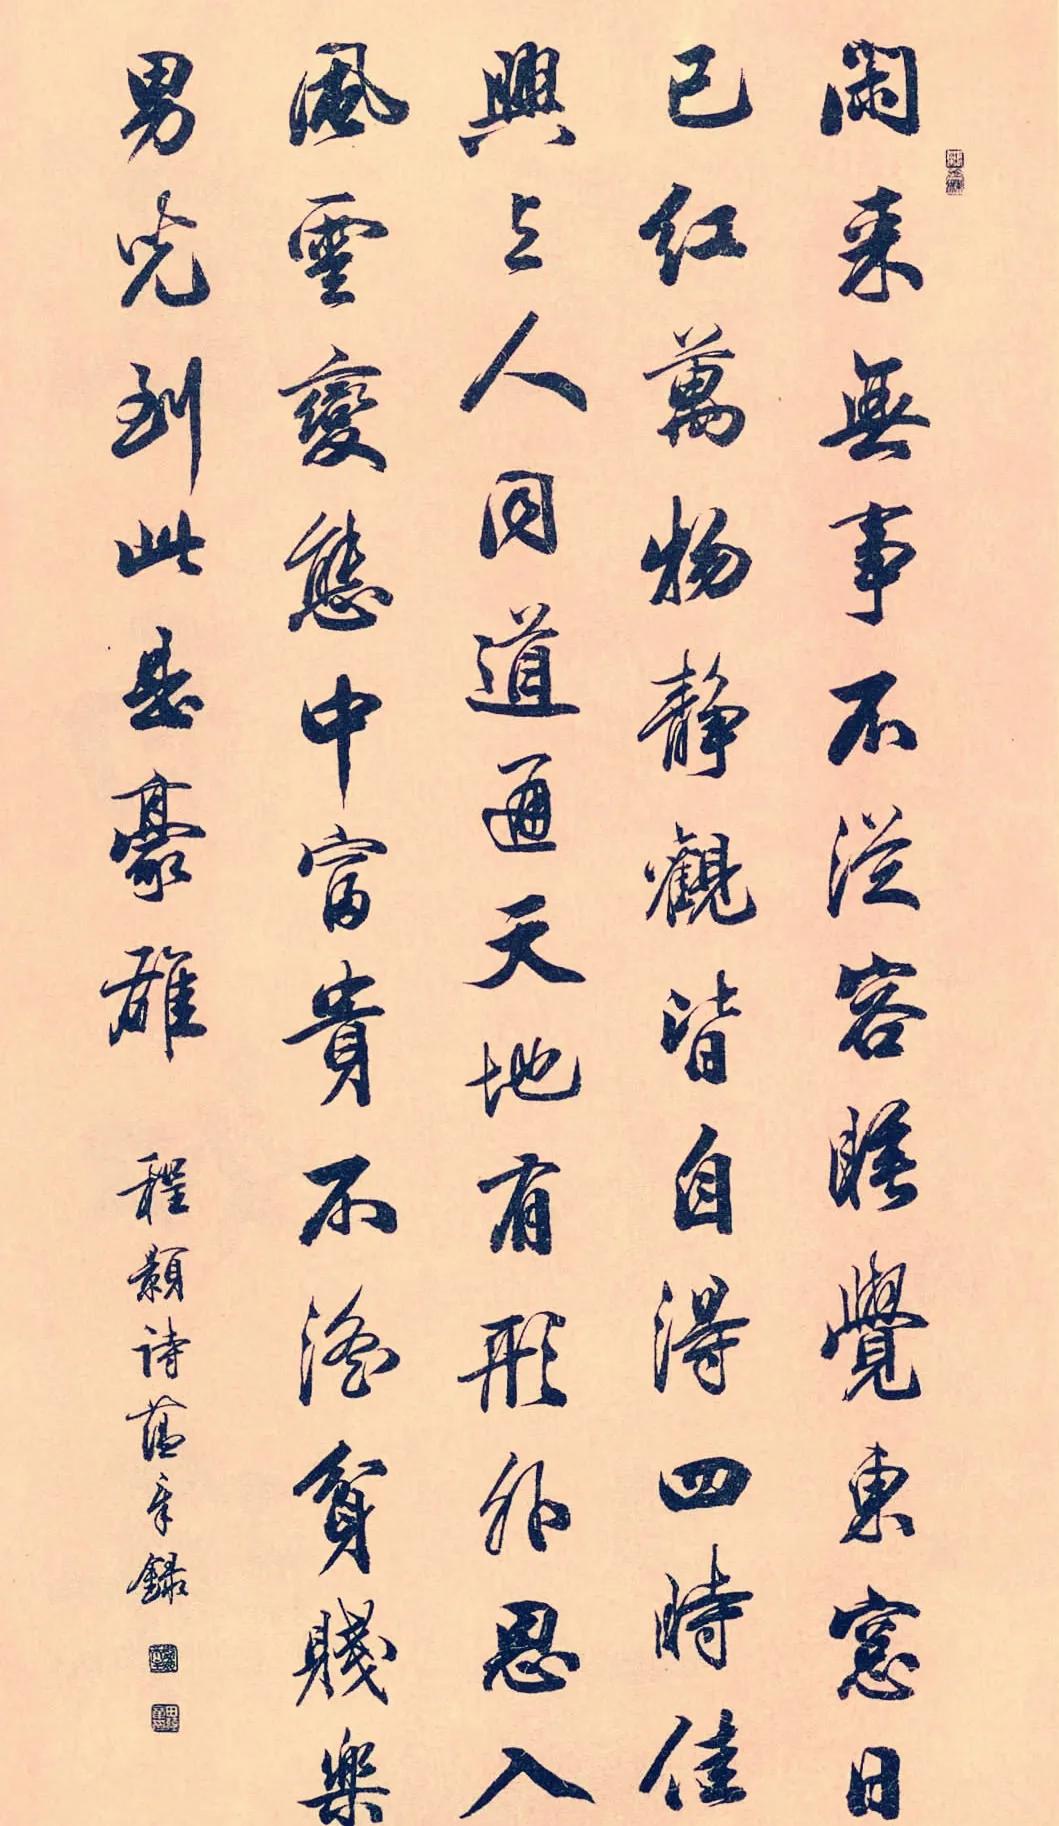 閑来無事不從容睡覺東窓日
已红萬物静觀皆自得四時佳
興與人同道通天地有形外思入
風雲變態中富貴不淫貧賤樂
男児到此是豪雄
程顥诗 録